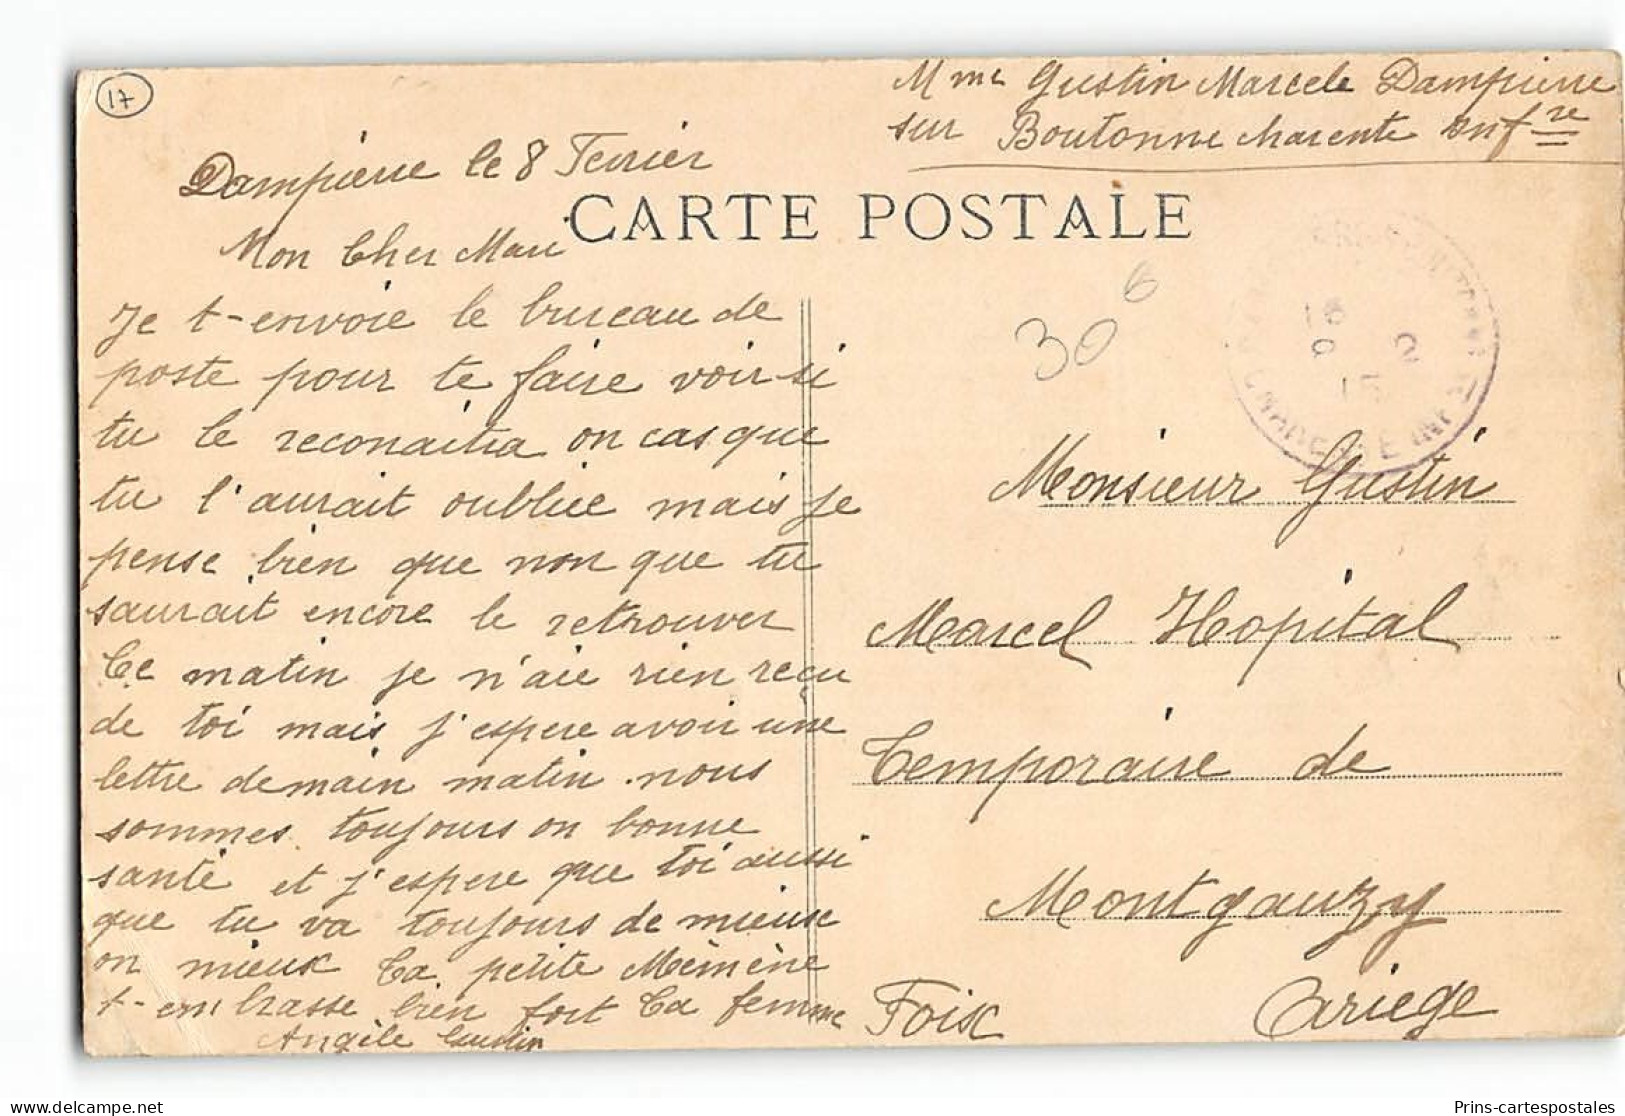 17
Mme Gustin Marcele Dampierre
sur Boutonne charente Infre
Dampierre le 8 Fevrier
CARTE POSTALE
Mon Cher Mari
Je t-envoie le bureau de
poste pour te faire voir si
tu le reconaitra on cas que
tu l'aurait oublié mais je
pense bien que non que tu
saurait encore le retrouver
Ce matin je n'aie rien reçu
de toi mais j'espere avoir une
lettre demain matin. nous
sommes toujours on bonne
santé et j'espere que toi aussi
que tu va toujours de mieux
on mieux Ta petite Mémène
t-embrasse bien fort Ta femme
Angèle Gustin
30
6
16 2
15
CHARENTE INF
Monsieur Gustin
Marcel Hopital
Temporaire de
Montgauzy
Foix Ariège
Prins-cartespostales
delcampe.net